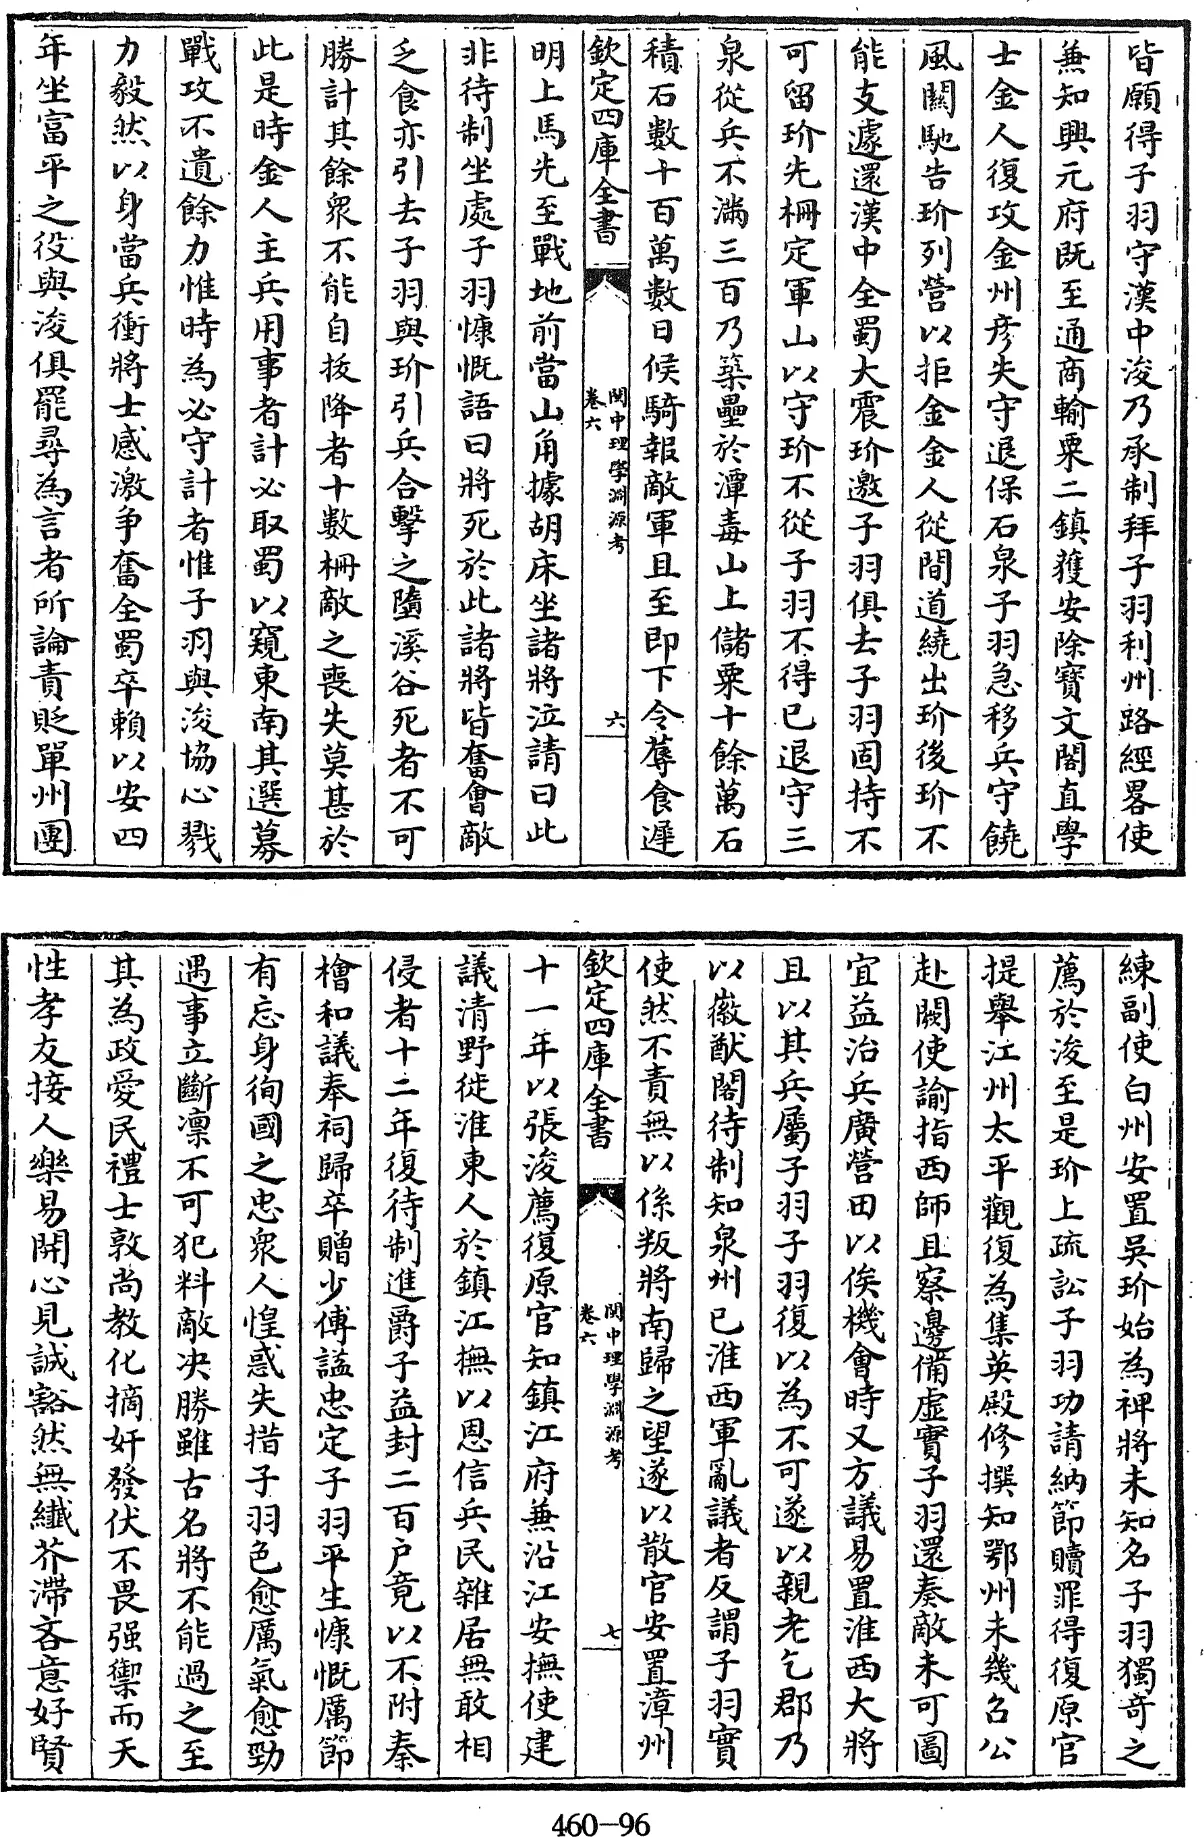 皆願得子羽守漢中浚乃承制拜子羽利州路經畧使
兼知興元府既至通商輸粟二鎮獲安除寶文閣直學
士金人復攻金州彦失守退保石泉子羽急移兵守饒
風關馳告玠列營以拒金金人從間道繞出玠後玠不
能支遽還漢中全蜀大震玠邀子羽俱去子羽固持不
可留玠先柵定軍山以守玠不從子羽不得已退守三
泉從兵不滿三百乃築壘於潭毒山上儲粟十餘萬石
積石數十百萬數日候騎報敵軍且至即下令蓐食遲
欽定四庫全書
閩中理學淵源考
卷六
六
明上馬先至戰地前當山角據胡床坐諸將泣請曰此
非待制坐處子羽慷慨語曰將死於此諸將皆奮會敵
乏食亦引去子羽與玠引兵合擊之墮溪谷死者不可
勝計其餘衆不能自拔降者十數柵敵之喪失莫甚於
此是時金人主兵用事者計必取蜀以窺東南其選募
戰攻不遺餘力惟時為必守計者惟子羽與浚協心戮
力毅然以身當兵衝將士感激争奮全蜀卒賴以安四
年坐富平之役與浚俱罷尋為言者所論責貶單州團
練副使白州安置吳玠始為裨將未知名子羽獨奇之
薦於浚至是玠上疏訟子羽功請納節贖罪得復原官
提舉江州太平觀復為集英殿修撰知鄂州未幾召公
赴闕使諭指西師且察邊備虚實子羽還奏敵未可圖
宜益治兵廣營田以俟機會時又方議易置淮西大將
且以其兵屬子羽子羽復以為不可遂以親老乞郡乃
以徽猷閣待制知泉州已淮西軍亂議者反謂子羽實
使然不責無以係叛將南歸之望遂以散官安置漳州
欽定四庫全書
閩中理學淵源考
卷六
七
十一年以張浚薦復原官知鎮江府兼沿江安撫使建
議清野徙淮東人於鎮江撫以恩信兵民雜居無敢相
侵者十二年復待制進爵子益封二百户竟以不附秦
檜和議奉祠歸卒贈少傅諡忠定子羽平生慷慨厲節
有忘身徇國之忠衆人惶惑失措子羽色愈厲氣愈勁
遇事立斷凛不可犯料敵决勝雖古名將不能過之至
其為政愛民禮士敦尚教化摘奸發伏不畏强禦而天
性孝友接人樂易開心見誠豁然無纎芥滯吝意好賢
460-96